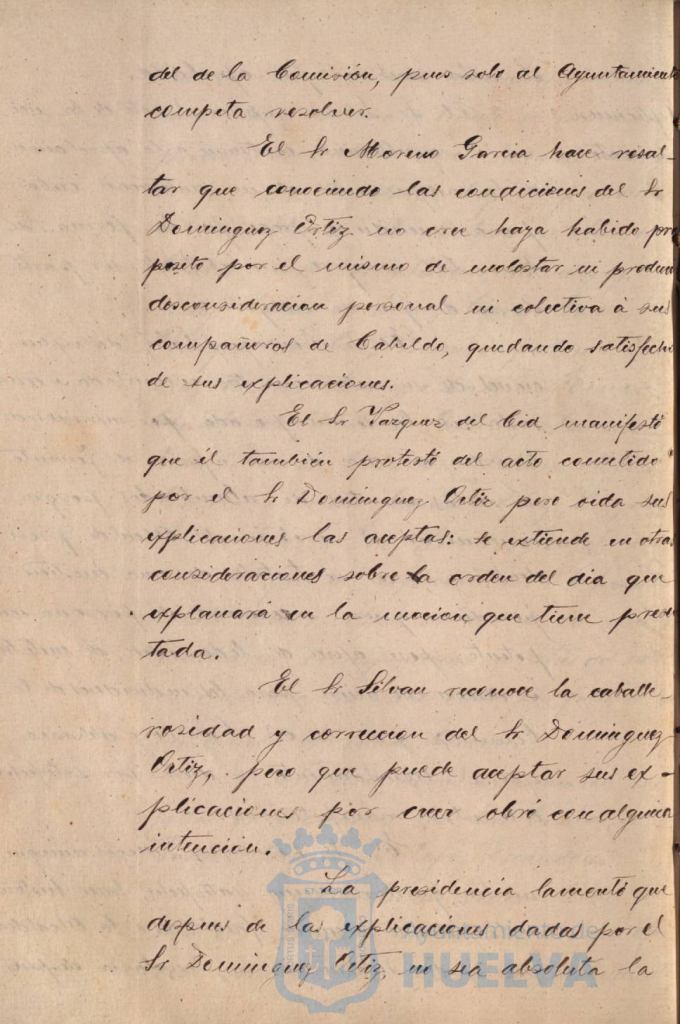 del de la Comisión, pues solo al Ayuntamiento
competa resolver.
El Sr Moreno Garcia hace resal-
tar que conociendo las condiciones del Sr
Dominguez Ortiz no cree haya habido pro
posito por el mismo de molestar ni producir
desconsideracion personal ni colectiva á sus
compañeros de Cabildo, quedando satisfecho
de sus explicaciones.
El Sr Vazquez del Cid manifestó
que él también protestó del acto cometido
por el Sr Dominguez Ortiz pero oida sus
explicaciones las aceptas: se extiende en otras
consideraciones sobre la orden del dia que
explanará en la mocion que tiene presen
tada.
El Sr Silvan reconoce la caballe-
rosidad y correccion del Sr Dominguez
Ortiz, pero que puede aceptar sus ex-
plicaciones por creer obró con alguna
intención.
La presidencia lamentó que
despues de las explicaciones dadas por el
Sr Dominguez Ortiz, no sea absoluta la
Ayuntamiento de
HUELVA